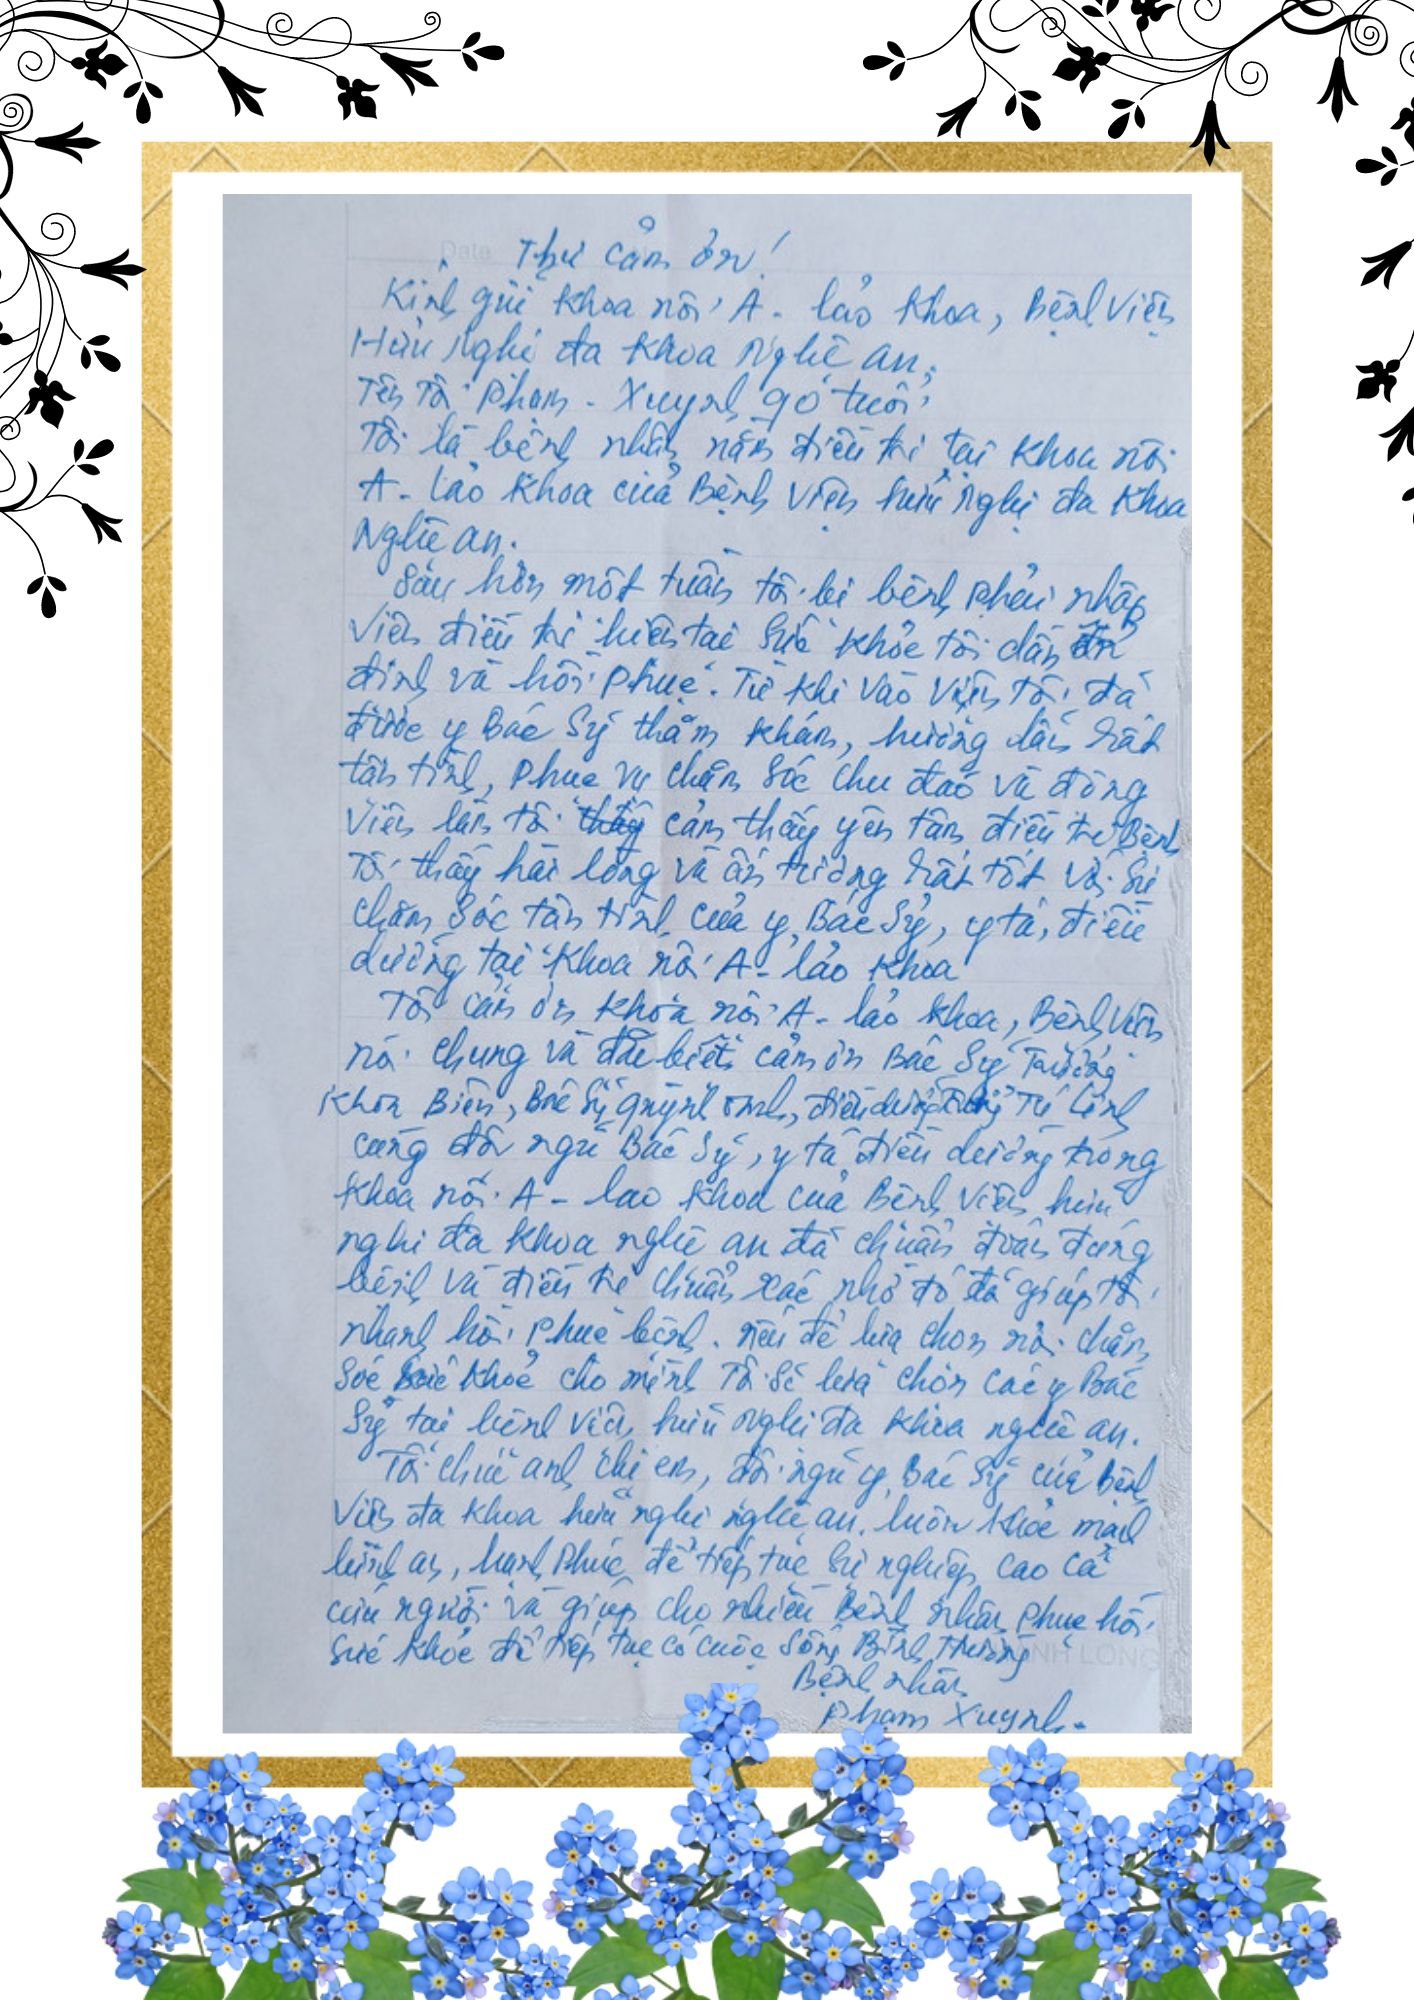 Thư cảm ơn!
Kính gửi khoa nội A - lão khoa, Bệnh viện
Hữu Nghị đa khoa Nghệ an.
Tên tôi Phạm - Xuynh 90 tuổi,
Tôi là bệnh nhân nằm điều trị tại khoa nội
A - lão khoa của Bệnh viện hữu Nghị đa khoa
Nghệ an.
Sau hơn một tuần tôi bị bệnh phải nhập
viện điều trị hiện tại sức khỏe tôi dần ổn
định và hồi phục. Từ khi vào viện tôi đã
được y Bác Sỹ thăm khám, hướng dẫn rất
tận tình, phục vụ chăm sóc chu đáo và động
viên làm tôi cảm thấy yên tâm điều trị Bệnh
Tôi thấy hài lòng và ấn tượng rất tốt với sự
chăm sóc tận tình của y, Bác Sỹ, y tá, điều
dưỡng tại khoa nội A - lão khoa
Tôi cảm ơn khoa nội A - lão khoa, Bệnh viện
nói chung và đặc biệt cảm ơn Bác Sỹ Trưởng
khoa Biên, Bác Sỹ quỳnh anh, điều dưỡng Tú Linh
cùng đội ngũ Bác Sỹ, y tá điều dưỡng trong
khoa nội A - lão khoa của Bệnh viện hữu
nghị đa khoa nghệ an đã chuẩn đoán đúng
bệnh và điều trị chuẩn xác nhờ đó đã giúp tôi
nhanh hồi phục bệnh. nếu để lựa chọn nơi chăm
sóc sức khoẻ cho mình Tôi sẽ lựa chọn các y Bác
Sỹ tại bệnh viện hữu nghị đa khoa nghệ an.
Tôi chúc anh chị em, đội ngũ y, Bác Sỹ của Bệnh
viện đa khoa hữu nghị nghệ an luôn khỏe mạnh
bình an, hạnh phúc để tiếp tục sự nghiệp cao cả
cứu người và giúp cho nhiều Bệnh nhân phục hồi
sức khỏe để tiếp tục có cuộc sống Bình thường
Bệnh nhân
Phạm Xuynh.